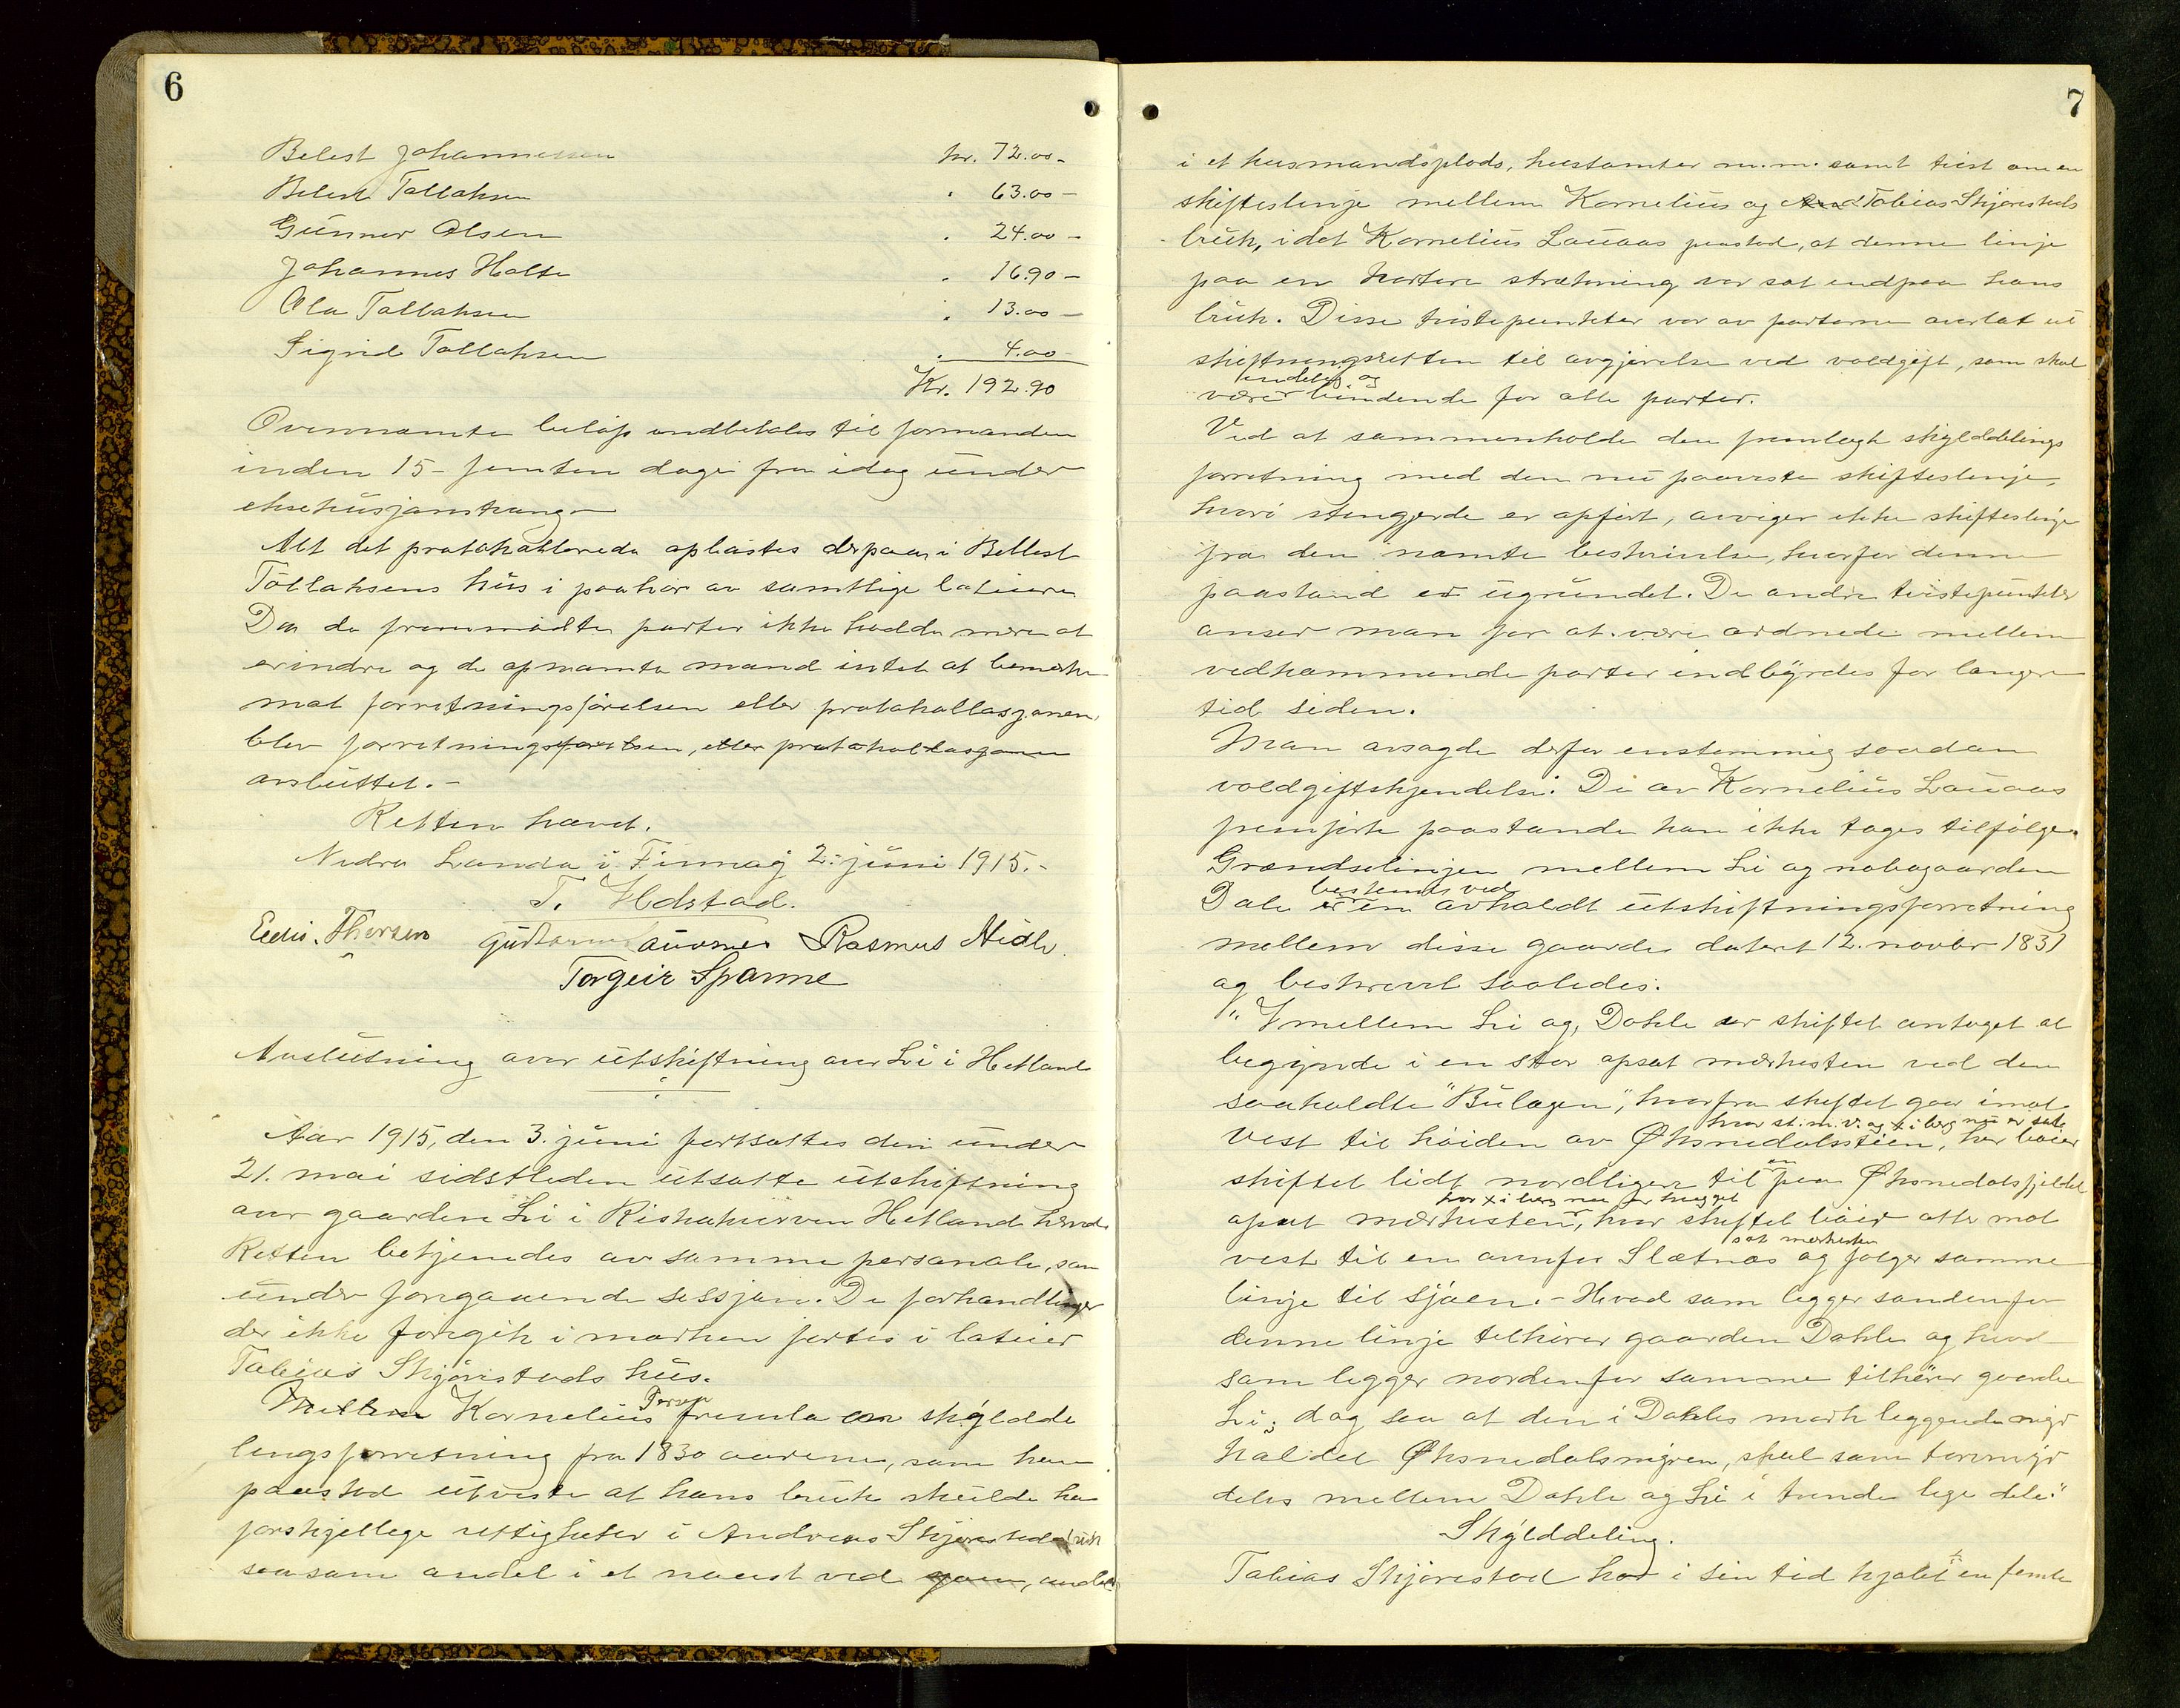 6
Belest Johannessen kr. 72.00 -
Belest Tollaksen " 63.00 -
Gunnar Olsen " 24.00 -
Johannes Holte " 16.90 -
Ola Tollaksen " 13.00 -
Sigrid Tollaksen " 4.00 -
Kr. 192.90
Ovennævnte beløp indbetales til formanden
inden 15 - femten dage fra idag under
eksekusjonstvang -
Alt det protokollerede oplæstes derpaa i Bellest
Tollaksens hus i paahør av samtlige loteiere
Da de fremmødte parter ikke hadde mere at
erindre og de opnævnte mænd intet at bemerke
mot forretningsførelsen eller protokollasjonen
blev forretningsførelsen, eller protokollasjonen
avsluttet. -
Retten hævet.
Nedre Landa i Finnøy 2. juni 1915. -
T. Hdstad.
Edv. Thorsen Guttorm Auvsnes Rasmus Midle.
Torgeir Spanne
Avslutning over utskiftning over Li i Hetland
Aar 1915, den 3. juni fortsattes den under
21. mai sidstleden utsatte utskiftning
over gaarden Li i Riskakverven Hetland herred.
Retten betjenedes av samme personale, som
under foregaaende sessjon. De forhandlinger
der ikke foregik i marken førtes i loteier
Tobias Skjørestads hus.
Mellem Kornelius Torsen fremla en skyldde
lingsforretning fra 1830 aarene, som han
paastod utviste at hans bruk skulde ha
forskjellige rettigheter i Andreas Skjørestads bruk
saasom andel i et naust ved sjøen, andel
7
i et husmandsplads, hustomter m.m. samt tvist om en
skifteslinje mellem Kornelius og And Tobias Skjørestads
bruk, idet Kornelius Lauaas paastod, at denne linje
paa en kortere strækning var sat indpaa hans
bruk. Disse tvistepunkter var av parterne overlat ut
skiftningsretten til avgjørelse ved voldgift, som skal
være endelig og bindende for alle parter.
Ved at sammenholde den fremlagte skylddelings
forretning med den nu paaviste skifteslinje,
hvori stengjerde er opført, avviger ikke skifteslinje
fra den nævnte beskrivelse, hvorfor denne
paastand er ugrundet. De andre tvistepunkter
anser man for at være ordnede mellem
vedkommende parter indbyrdes for længere
tid siden.
Man avsagde derfor enstemmig saadan
voldgiftskjendelse: De av Kornelius Lauaas
fremførte paastande kan ikke tages tilfølge.
Grændselinjen mellem Li og nabogaarden
Dale er bestemt ved en avholdt utskiftningsforretning
mellem disse gaarde datert 12. novbr 1831
og beskrevet saaledes:
"Imellem Li og Dahle er skiftet antaget at
begynde i en stor opsat merkesten ved den
saakaldte "Bulagen", hvorfra skiftet gaar imot
vest til høiden av Øksnedalsstien, hvor st. m. v. og x i berg nu er satt, her bøier
skiftet lidt nordligere til en paa Øksnedalsfjeldet
opsat merkesten, hvor x i berg nu er hugget, hvor skiftet bøier atter mot
vest til en ovenfor Slætnæs sat merkesten og følger samme
linje til sjøen. - Hvad som ligger søndenfor
denne linje tilhører gaarden Dahle og hvad
som ligger nordenfor samme tilhører gaarden
Li; dog saa at den i Dahles mark liggende myr
kaldet Øksnedalsmyren, skal som torvmyr
deles mellem Dahle og Li i tvende lige dele."
Skylddeling.
Tobias Skjørestad har i sin tid kjøbt en femte